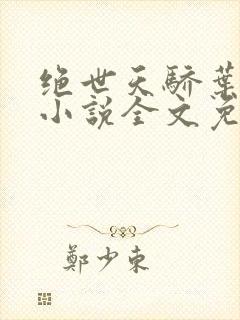 绝世天骄葉
小說全文免
鄭少東